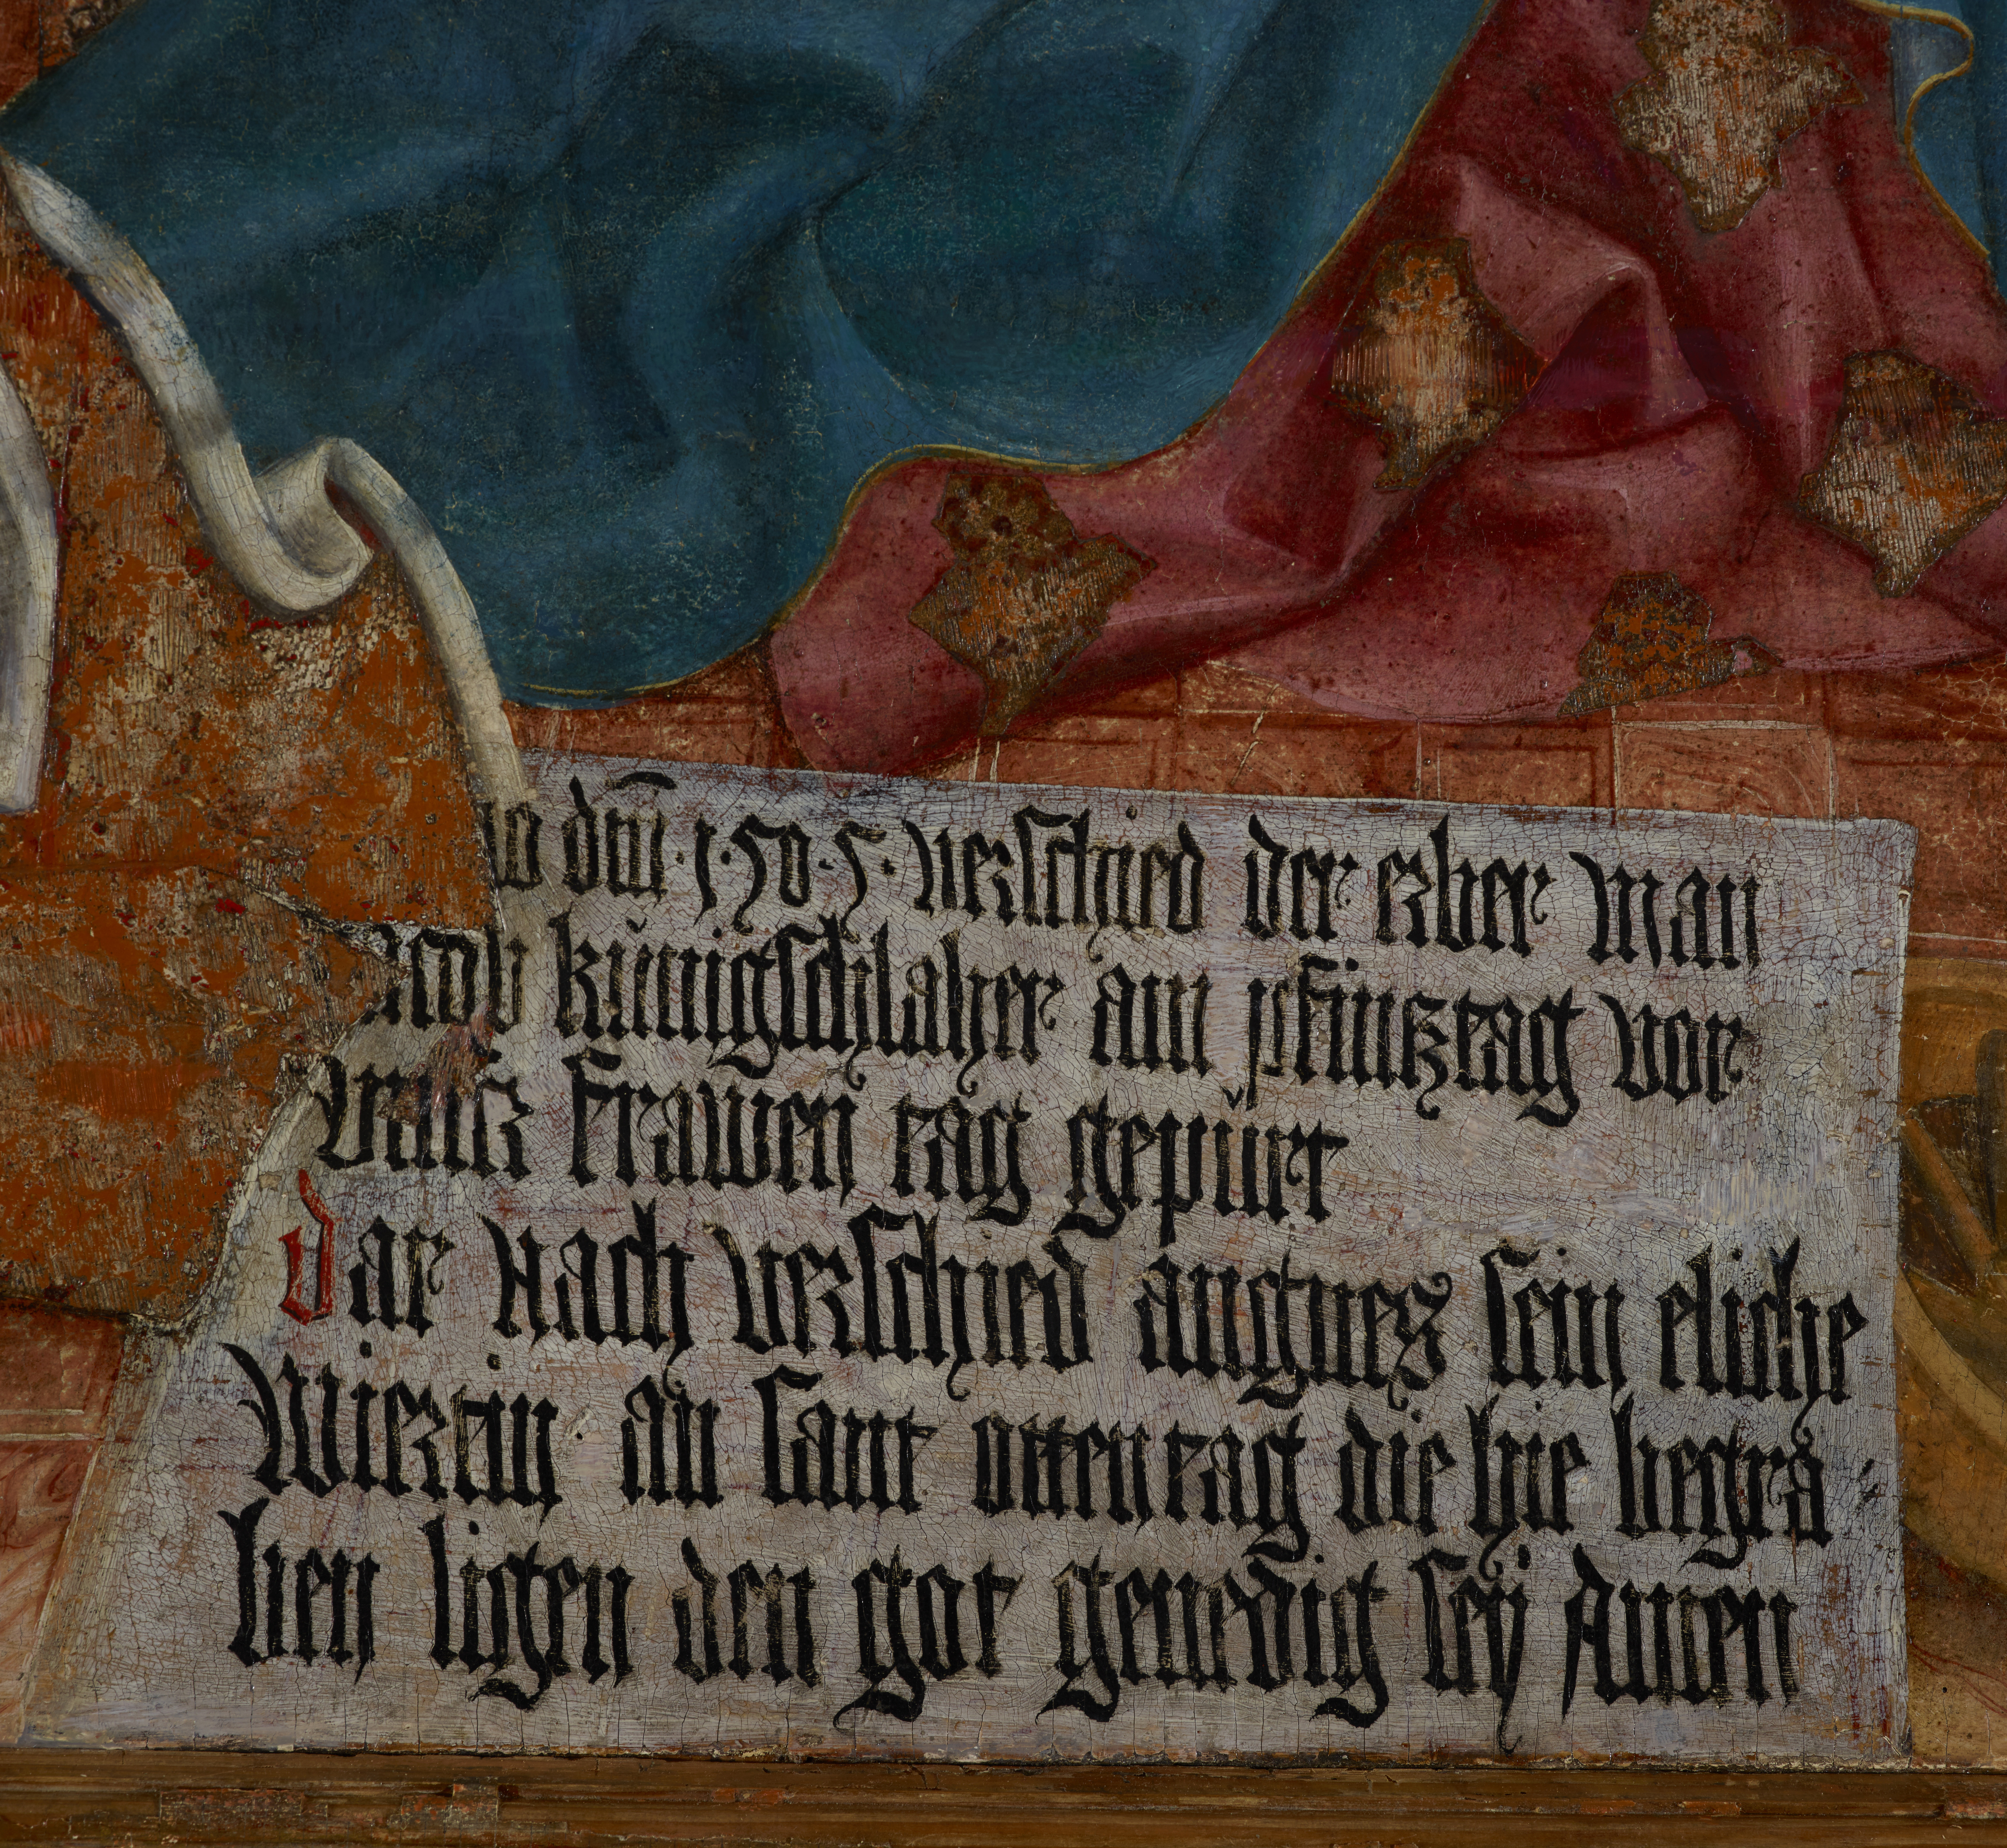 no dm̄ · 1 · 50 · 5 · verschied der erber man
acob künigschlaher am pfintztag vor
vnnß frawen tag gepürt
Dar nach verschied angnes sein eliche
Wirtin · an sant otten tag die hie begra
ben ligen den got genedig seÿ Amen